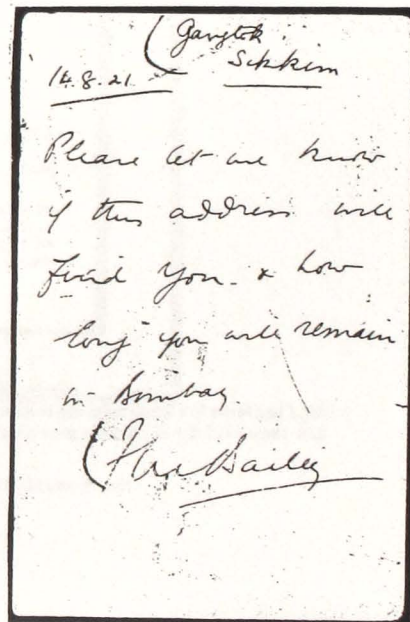 Gangtok
Sikkim
14.8.21
Please let me know
if this address will
find you & how
long you will remain
in Bombay.
Bailey